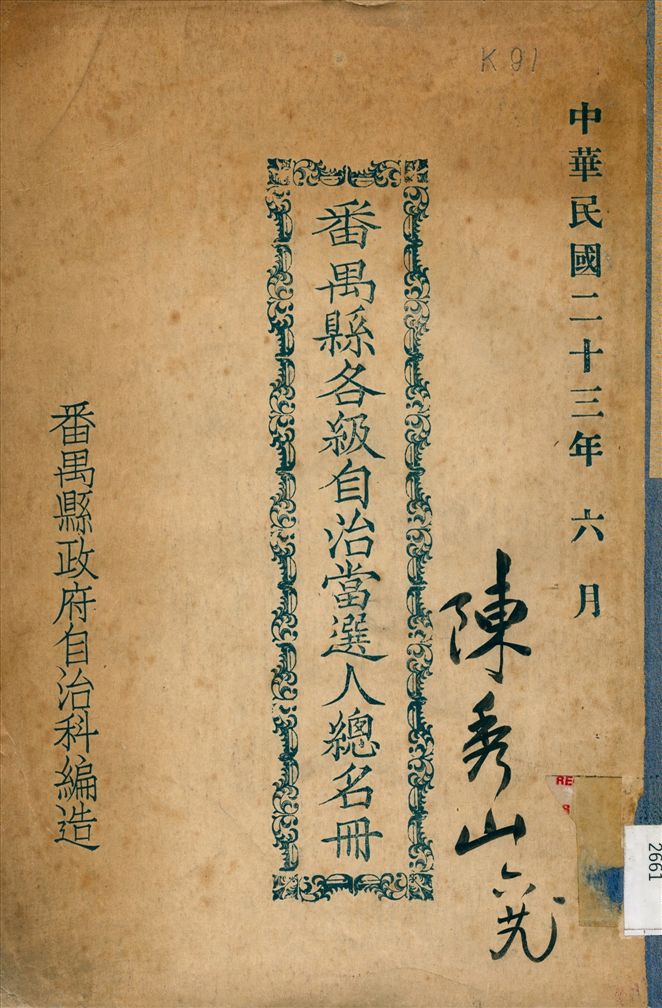 K91
中華民國二十三年 六月
陳秀山
番禺縣各級自治當選人總名冊
番禺縣政府自治科編造
RE
2661